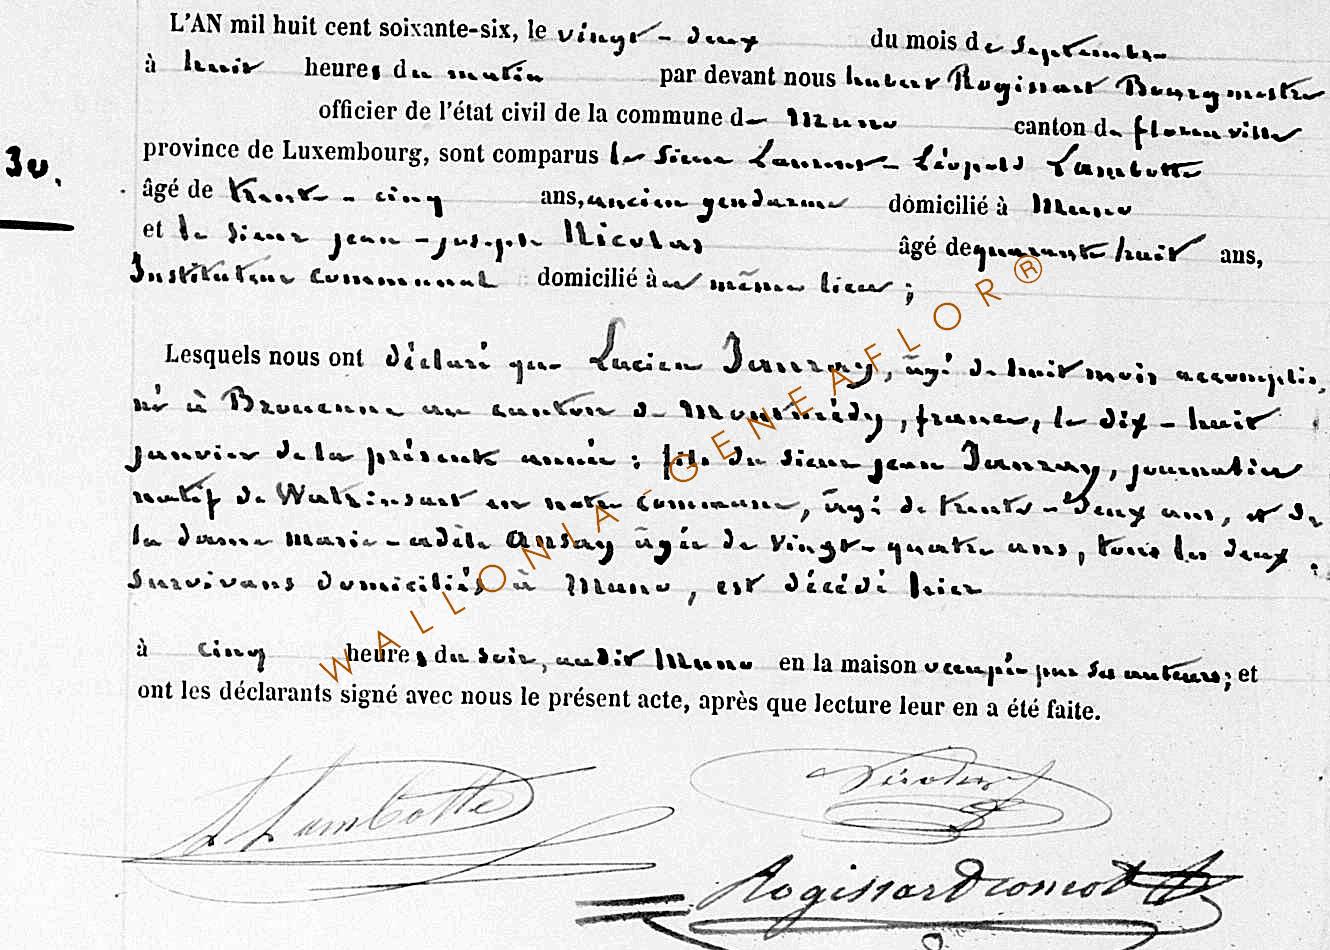 L'AN mil huit cent soixante-six, le vingt-deux du mois de Septembre
à huit heures du matin par devant nous hubert Rogissart Bourgmestre
officier de l'état civil de la commune de Muno canton de florenville
30.
province de Luxembourg, sont comparus le sieur Laurent-Léopold Lambotte
âgé de trente-cinq ans, ancien gendarme domicilié à Muno
et le sieur jean-joseph Nicolas âgé de quarante huit ans,
Instituteur communal domicilié à même lieu ;
Lesquels nous ont déclaré que Lucien Janzay, âgé de huit mois accomplis,
né à Brouenne au canton de Montmédy, france, le dix-huit
janvier de la présente année ; fils du sieur jean Janzay, journalier
natif de Watrinsart en notre commune, âgé de trente-deux ans, et de
la dame marie-adèle ansay âgée de vingt-quatre ans, tous les deux
survivans domiciliés à Muno, est décédé hier
à cinq heures du soir, audit Muno en la maison occupée par ses auteurs ; et
ont les déclarants signé avec nous le présent acte, après que lecture leur en a été faite.
WALLONIA - GENEAFLOR®
Lambotte
Nicolas
Rogissart